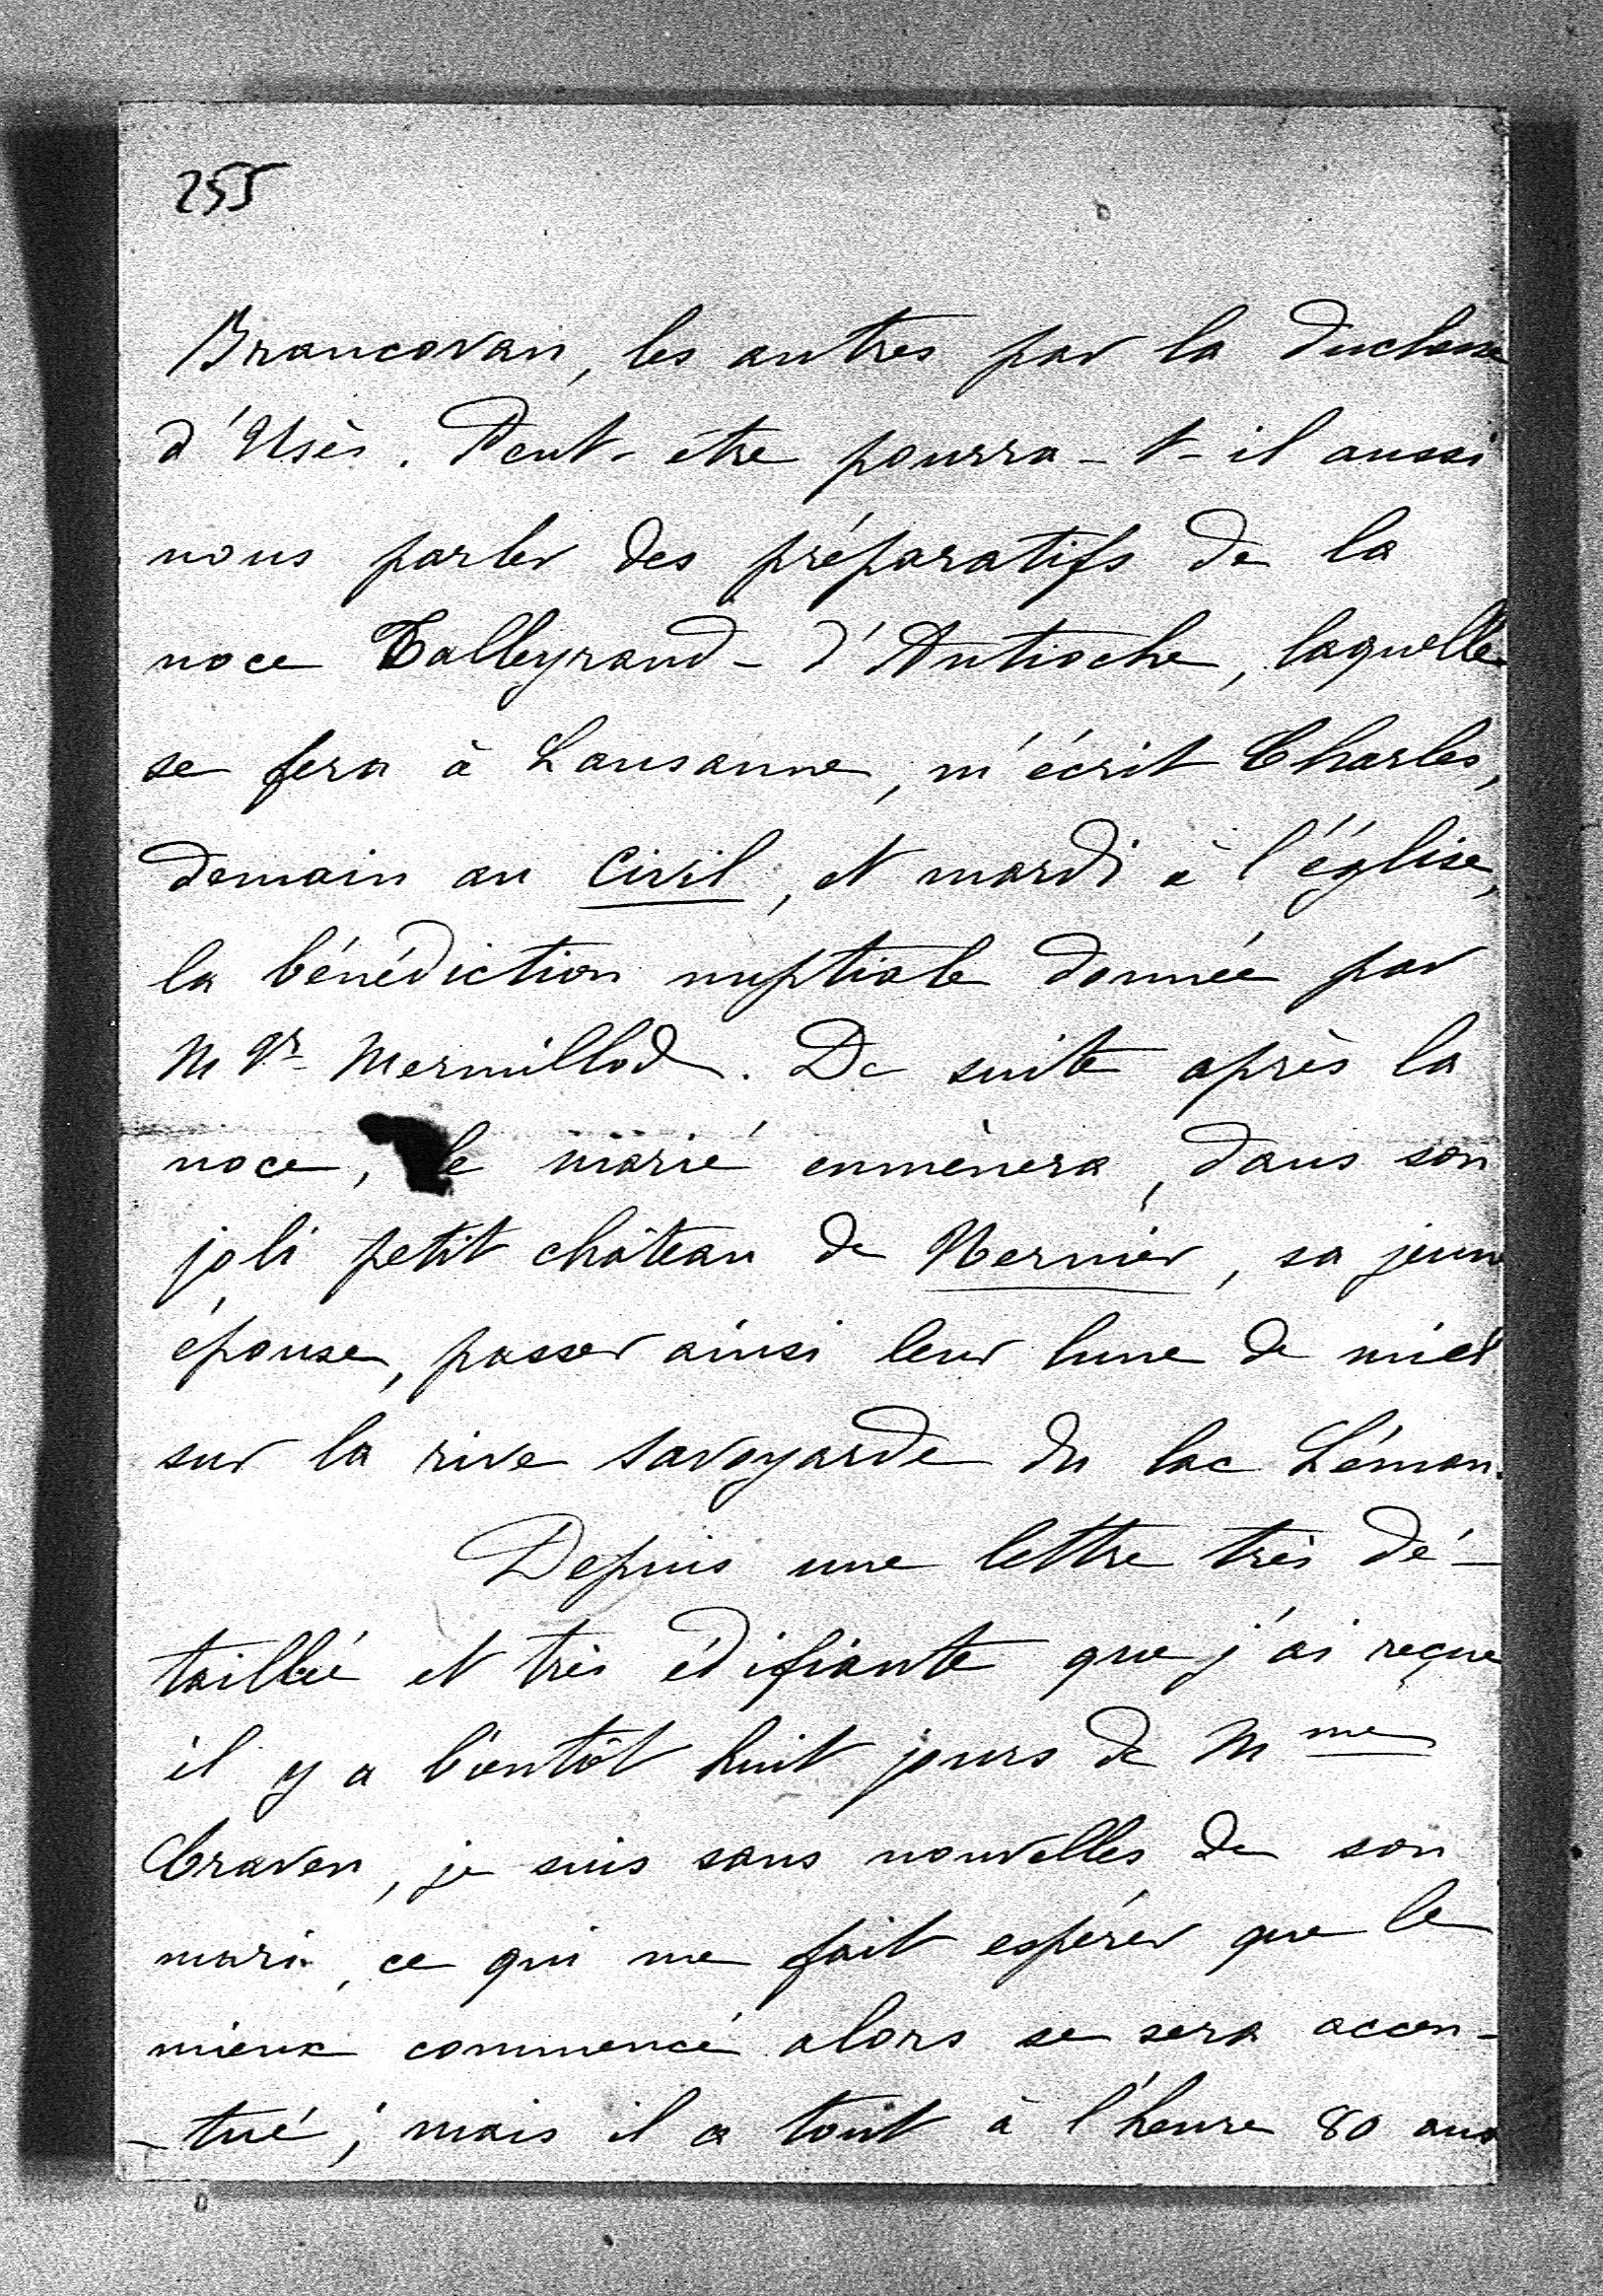 255
Brancovan, les autres par la duchesse
d'Usès. Peut-être pourra-t-il aussi
nous parler des préparatifs de la
noce Talleyrand-d'Antioche, laquelle
se fera à Lausanne, m'écrit Charles,
demain au civil, et mardi à l'église,
la bénédiction nuptiale donnée par
Mgr Mermillod. De suite après la
noce, le marié emmènera, dans son
joli petit château de Nernier, sa jeune
épouse, passer ainsi leur lune de miel
sur la rive savoyarde du lac Léman.
Depuis une lettre très dé-
taillée et très édifiante que j'ai reçue
il y a bientôt huit jours de Mme
Craven, je suis sans nouvelles de son
mari, ce qui me fait espérer que le
mieux commencé alors se sera accen-
-tué; mais il a tout à l'heure 80 ans